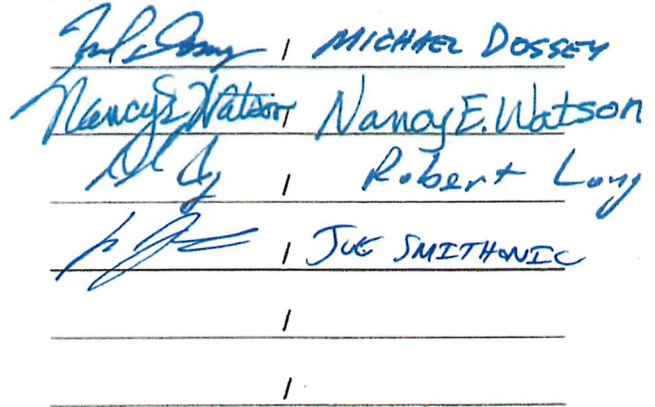 / MICHAEL DOSSEY
Nancy E. Watson / Nancy E. Watson
/ Robert Long
/ JOE SMITHONIC
/
/